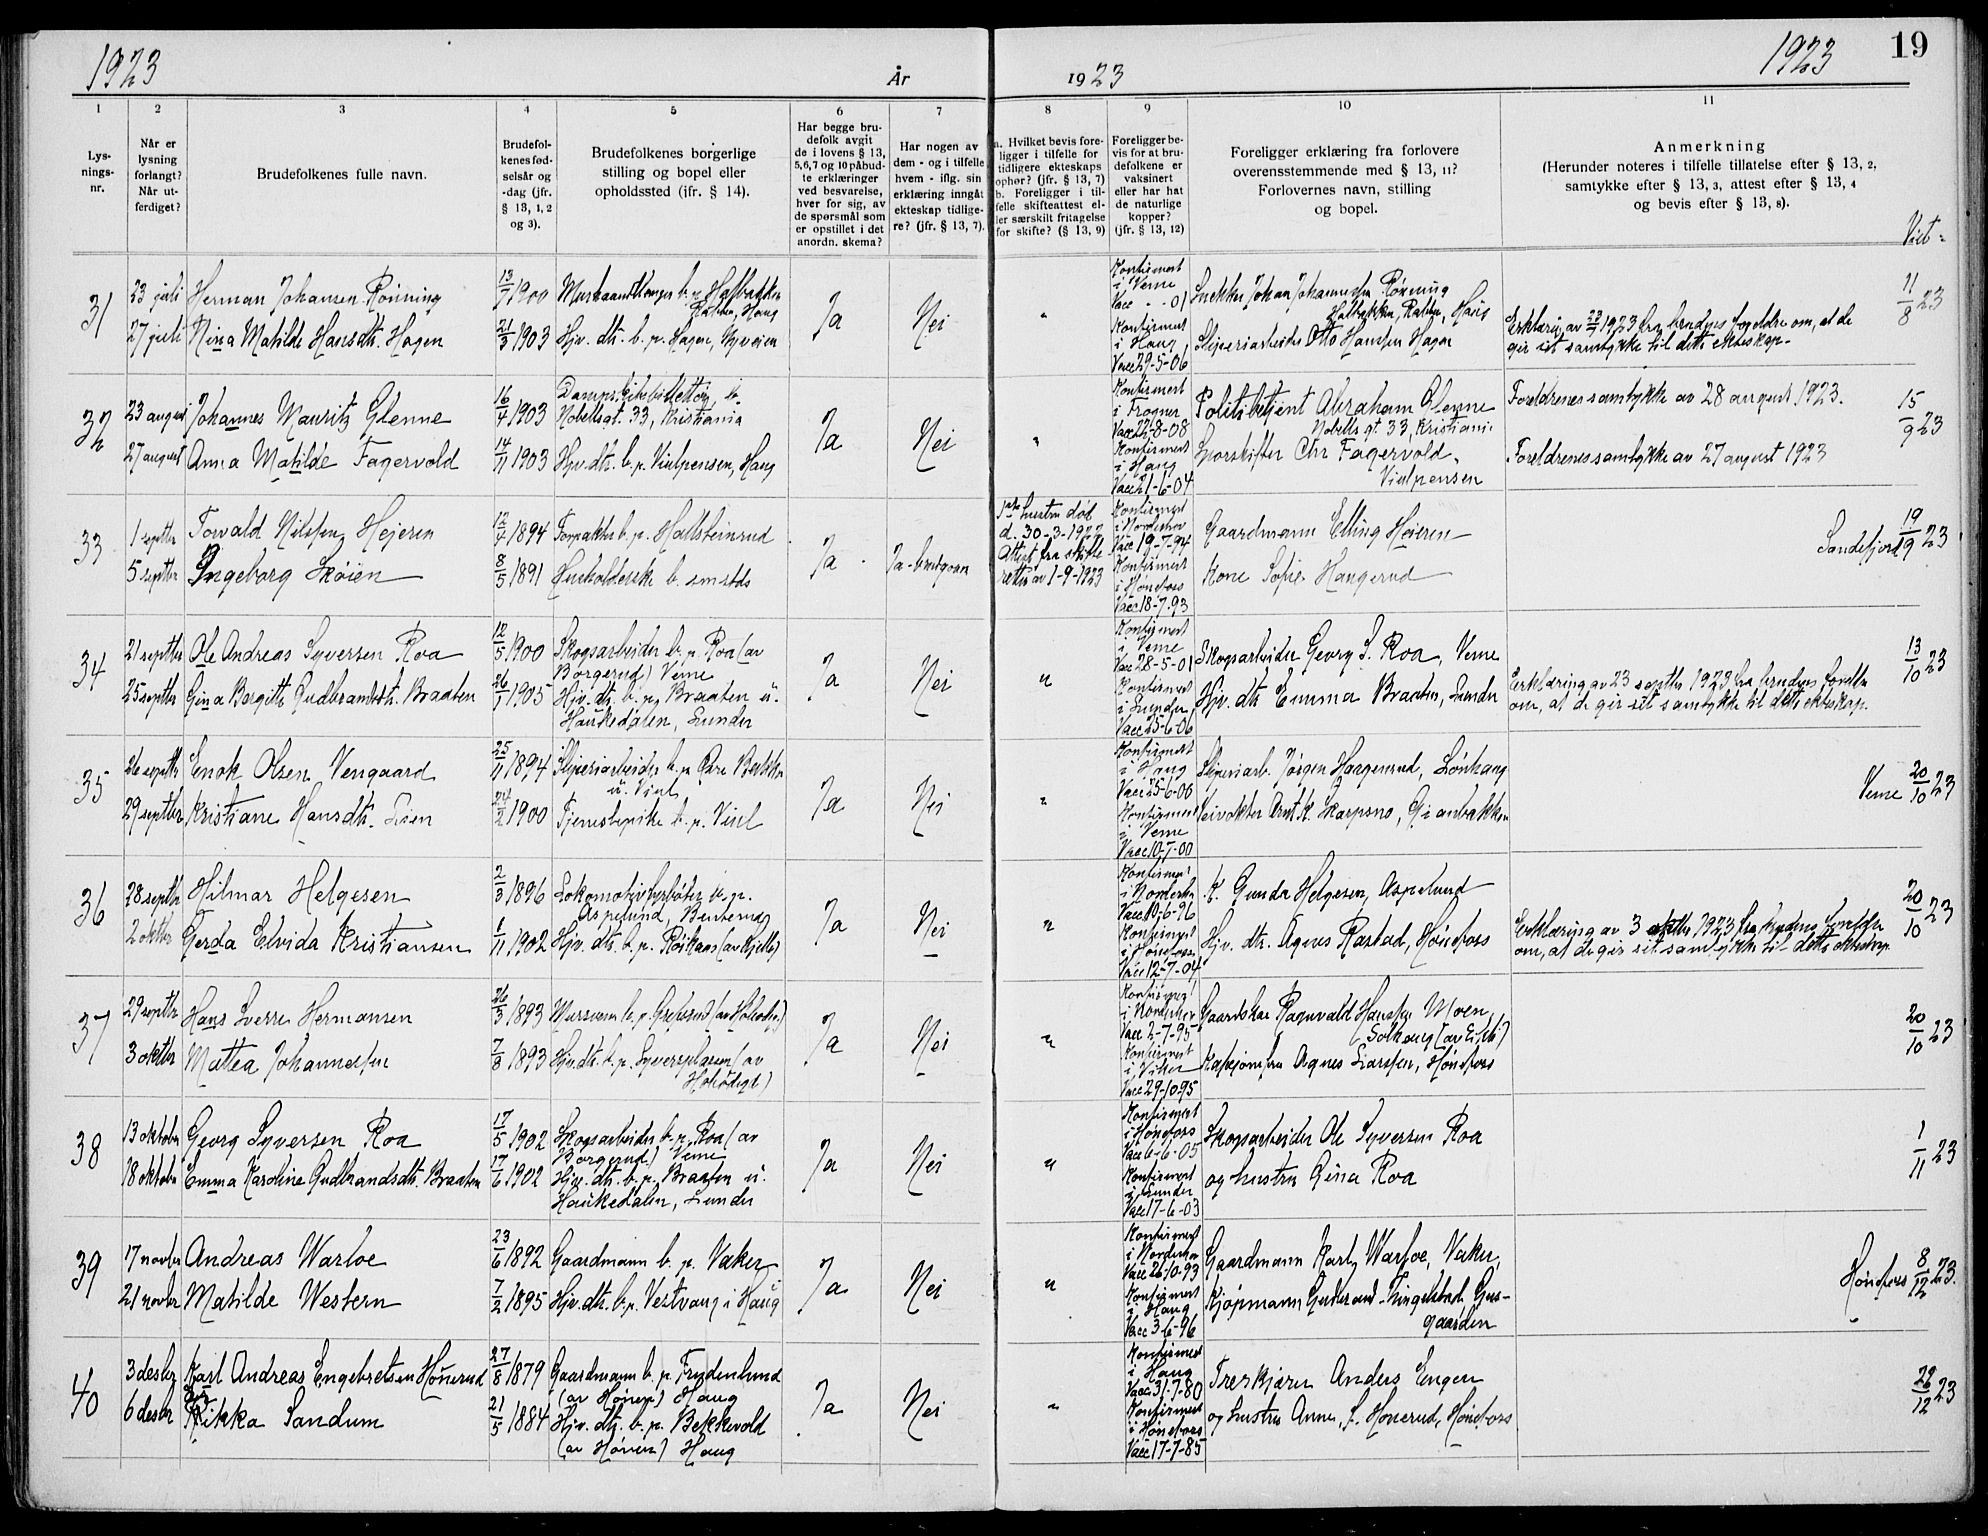 1923
År
1923
1923
19
1 2 3 4 5 6 7 8 9 10 11
Lys-
nings-
nr.
Når er
lysning
forlangt?
Når ut-
ferdiget?
Brudefolkenes fulle navn.
Brudefol-
kenes fød-
selsår og
-dag (jfr.
§ 13, 1, 2
og 3).
Brudefolkenes borgerlige
stilling og bopel eller
opholdssted (jfr. § 14).
Har begge bru-
defolk avgit
de i lovens § 13,
5,6,7 og 10 påbud-
te erklæringer
ved besvarelse,
hver for sig, av
de spørsmål som
er opstillet i det
anordn. skema?
Har nogen av
dem - og i tilfelle
hvem - iflg. sin
erklæring inngåt
ekteskap tidlige-
re? (jfr. § 13, 7).
a. Hvilket bevis fore-
ligger i tilfelle for
tidligere ekteskaps
ophør? (jfr. § 13, 7)
b. Foreligger i til-
felle skifteattest el-
ler særskilt fritagelse
for skifte? (§ 13, 9)
Foreligger be-
vis for at bru-
defolkene er
vaksinert
eller har hat
de naturlige
kopper?
(jfr. § 13, 12)
Foreligger erklæring fra forlovere
overensstemmende med § 13, 11?
Forlovernes navn, stilling
og bopel.
Anmerkning
(Herunder noteres i tilfelle tillatelse efter § 13, 2,
samtykke efter § 13, 3, attest efter § 13, 4
og bevis efter § 13, 8).
Viet =
31
23 juli
27 juli
Herman Johansen Rønning
Nina Matilde Hansdtr. Hagen
13/7 1900
21/3 1903
Hjv. dtr. b. p. Hagen,
Ja
Nei
"
Konfirmert
i Verne
Vacc - - 01
Konfirmert
i Haug
Vacc 29-5-06
Snekker Johan Johannessen Rønning
Hofbakken, Haug
Sliperiarbeider Otto Hansen Hagen
Erklæring av 23/7 1923 fra brudens foreldre om, at de
gir sit samtykke til dette ekteskap.
11/8 23
32
23 august
27 august
Johannes Mauritz Glenne
Anna Matilde Fagervold
16/4 1903
14/11 1903
Nobelsgt. 33, Kristiania
Hjv. dtr. b. p. Viulpensen, Haug
Ja
Nei
"
Konfirmert
i Frogner
Vacc 22-8-08
Konfirmert
i Haug
Vacc 21-6-04
Politibetjent Abraham Glenne
Nobels gt. 33, Kristiani-
Sporskifter Chr Fagervold,
Viulpensen
Foreldrenes samtykke av 28 august 1923.
Foreldrenes samtykke av 27 august 1923
15/9 23
33
1 septbr
5 septbr
Torvald Nilssen Hejeren
Ingeborg Skøien
12/4 1894
8/5 1891
Forpakter b. p. Hallsteinrud
Husholderske b. smstds
Ja
Ja - brudgom
1ste hustru død
d. 30-3-1922
Attest fra skifte
retten av 1-9-1923
Konfirmert
i Norderhov
Vacc 19-7-94
Konfirmert
i Hønefoss
Vacc 18-7-93
Gaardmann Elling Høieren
Kone Sofie Haugerud
Sandefjord 19/9 23
34
21 septbr
25 septbr
Ole Andreas Syversen Roa
Gina Bergitte Gudbrandsdtr. Braaten
12/5 1900
26/1 1905
Skogsarbeider b. p. Roa (av
Borgerud) Verne
Hjv. dtr. b. p. Braaten u.
Haukedalen, Lunder
Ja
Nei
"
Konfirmert
i Verne
Vacc 28-5-01
Konfirmert
i Lunder
Vacc 25-6-06
Skogsarbeider Georg S. Roa, Verne
Hjv. dtr Emma Braaten, Lunder
Erklæring av 23 septbr 1923 fra brudens foreldre
om, at de gir sit samtykke til dette ekteskap.
13/10 23
35
26 septbr
29 septbr
Enok Olsen Vengaard
Kristiane Hansdtr. Lien
25/11 1894
24/2 1900
Sliperiarbeider b. p. Øvre Bakken
u. Viul
Tjenestepike b. p. Viul
Ja
Nei
"
Konfirmert
i Haug
Vacc 25-6-00
Konfirmert
i Verne
Vacc 10-7-00
Sliperiarb. Jørgen Haugerud, Lønhaug
Veivokter Arnt K. Skarpsno,
Verne 20/10 23
36
28 septbr
2 oktbr
Hilmar Helgesen
Gerda Elvida Kristiansen
2/3 1896
1/11 1902
Lokomotivfyrbøter b. p.
Aspelund, Benterud
Hjv. dtr. b. p.
Ja
Nei
"
Konfirmert
i Norderhov
Vacc 19-6-96
Konfirmert
i Hønefoss
Vacc 12-7-04
Gunda Helgesen, Aspelund
Hjv. dtr. Agnes Rastad, Hønefoss
Erklæring av 3 oktbr 1923 fra brudens foreldre
om, at de gir sit samtykke til dette ekteskap
20/10 23
37
29 septbr
3 oktbr
Hans Sverre Hermansen
Mattea Johannessen
26/3 1893
7/8 1893
Hjv. dtr. b. p. Syversplassen (av
Ja
Nei
"
Konfirmert
i Norderhov
Vacc 2-7-95
Konfirmert
i Viker
Vacc 29-10-95
Gaardsbr. Ragnvald Hansen Moen,
Agnes Larssen, Hønefoss
20/10 23
38
13 oktober
18 oktober
Georg Syversen Roa
Emma Karoline Gudbrandsdtr. Braaten
17/5 1902
17/6 1902
Skogsarbeider b. p. Roa (av
Borgerud) Verne
Hjv. dtr. b. p. Braaten u.
Haukedalen, Lunder
Ja
Nei
"
Konfirmert
i Hønefoss
Vacc 6-6-05
Konfirmert
i Lunder
Vacc 17-6-03
Skogsarbeider Ole Syversen Roa
og hustru Gina Roa
1/11 23
39
17 novbr
21 novbr
Andreas Warloe
Matilde Western
23/6 1892
7/2 1895
Gaardmann b. p. Vaker
Hjv. dtr. b. p. Vestvang i Haug
Ja
Nei
"
Konfirmert
i Norderhov
Vacc 26-10-93
Konfirmert
i Haug
Vacc 3-6-96
Gaardmann Karl Warloe, Vaker,
Kjøpmann Tingelstad,
gaarden
Hønefoss 8/12 23.
40
3 desbr
6 desbr
Karl Andreas Engebretsen Hønerud
Rikka Sandum
27/8 1879
21/5 1884
Gaardmann b. p. Frydenlund
(av Hønen) Haug
Hjv. dtr. b. p. Bekkevold
(av Hønen) Haug
Ja
Nei
"
Konfirmert
i Haug
Vacc 31-7-80
Konfirmert
i Hønefoss
Vacc 17-7-85
Træskjærer Anders Engen
og hustru Anne, f. Hønerud, Hønefoss
12 23